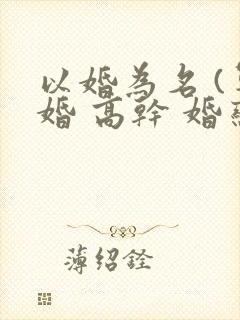 以婚為名(
婚 高幹 婚
薄绍銓